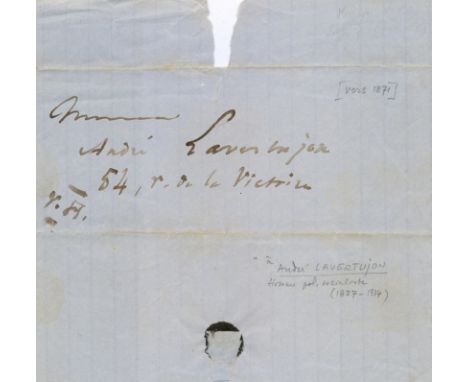 [vers 1871]
Monsieur
André Lavertujon
54, r. de la Victoire
"à
André LAVERTUJON
Homme pol.
(1827-1914)